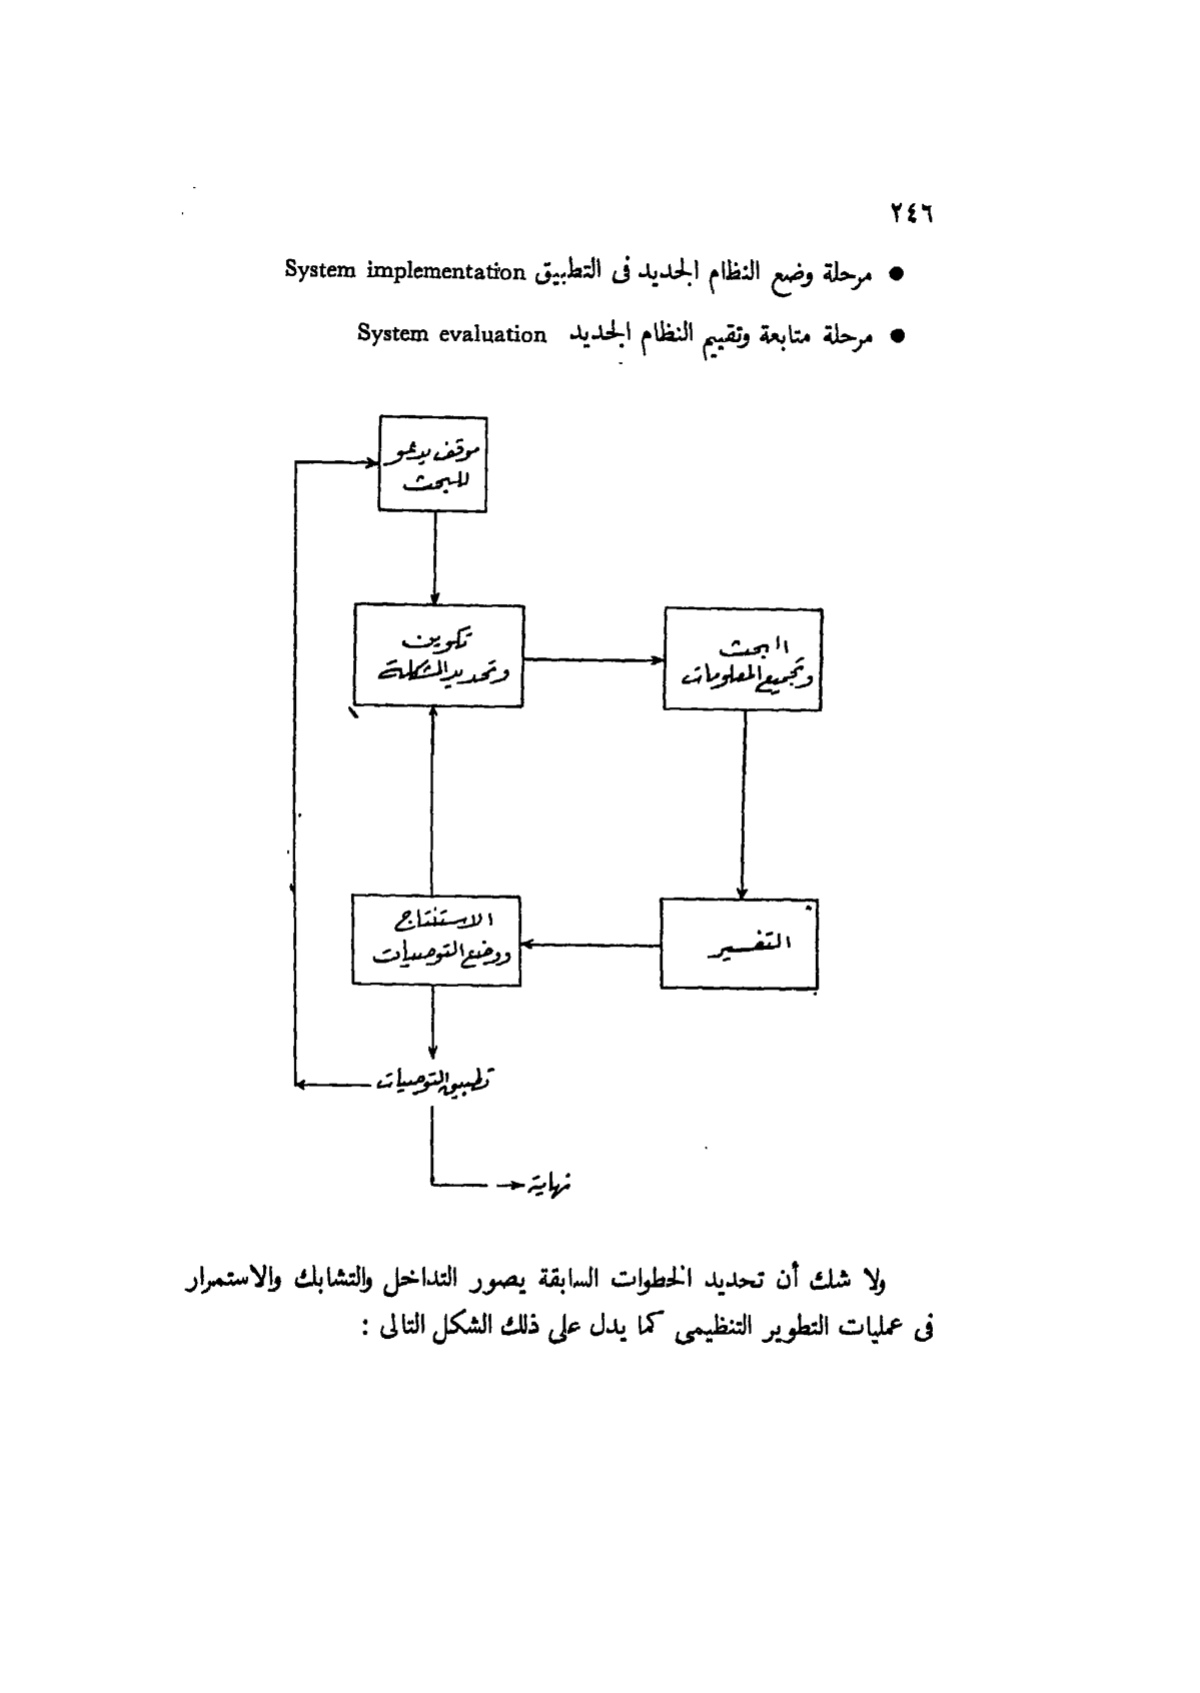 ٢٤٦
● مرحلة وضع النظام الجديد فى التطبيق System implementation
● مرحلة متابعة وتقييم النظام الجديد System evaluation
موقف يدعو
للبحث
تكوين
وتحديد المشكلة
البحث
وتجميع المعلومات
التفسير
الاستنتاج
ووضع التوصيات
تطبيق التوصيات
نهاية
ولا شك أن تحديد الخطوات السابقة يصور التداخل والتشابك والاستمرار
فى عمليات التطوير التنظيمى كما يدل على ذلك الشكل التالى :